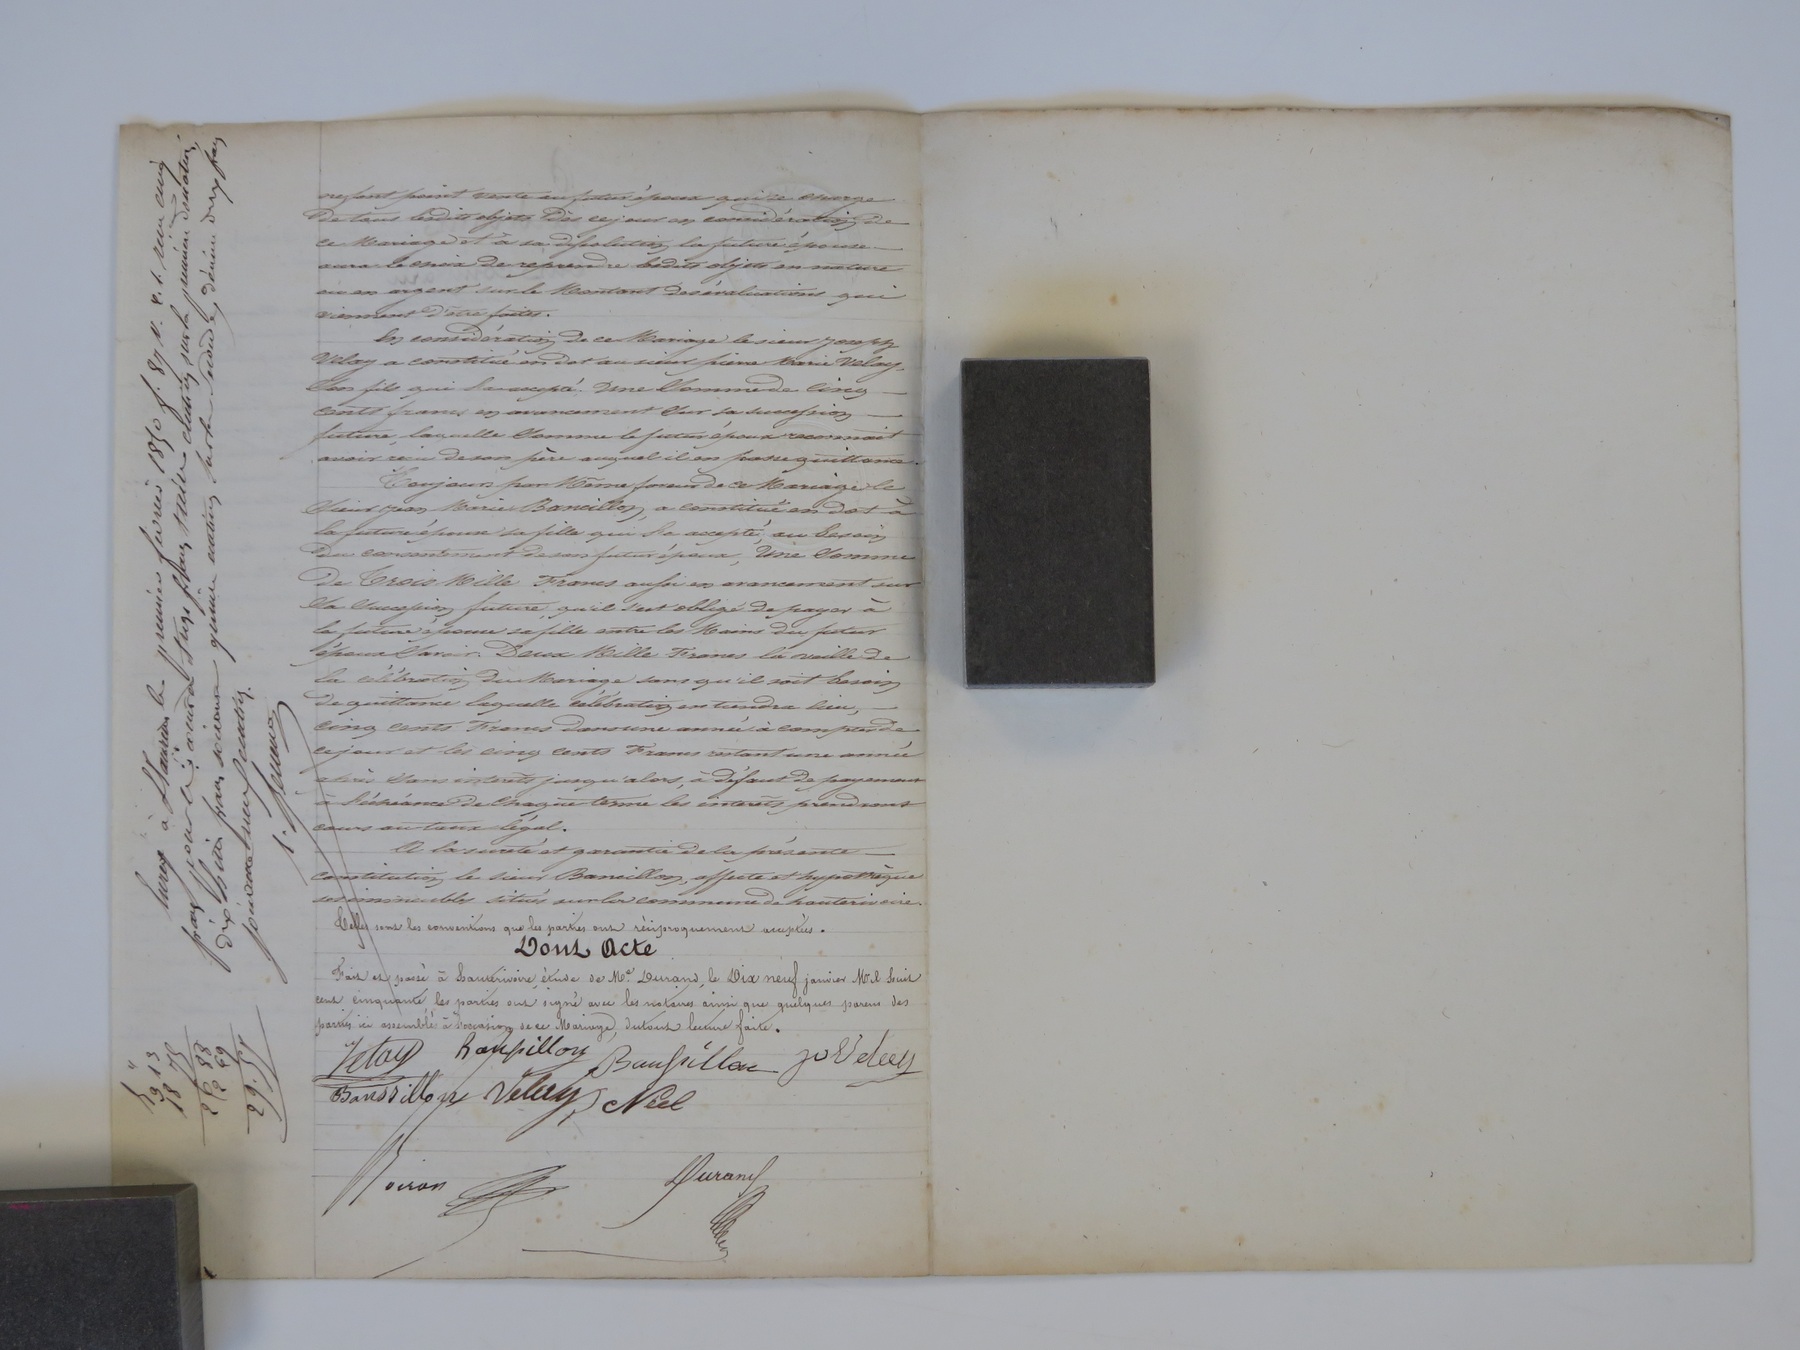 ne font point vente au futur époux qui se charge
De tous lesdits objets Dès ce jour en considération de
ce Mariage et à sa dissolution la future épouse
aura le choix De reprendre lesdits objets en nature
ou en argent sur le Montant Des évaluations qui
viennent D'être faites.
En considération de ce Mariage le sieur Joseph
Velay a constitué en dot au sieur pierre Marie Velay,
Son fils qui l'a accepté. Une Somme de Cinq
cents francs en avancement Sur sa succession
future, laquelle Somme le futur époux reconnait
avoir reçu de son père auquel il en passe quittance.
Toujours par Même faveur de ce Mariage le
Sieur Jean Marie Bancillon, a constitué en dot à
la future épouse sa fille qui l'a accepté, au besoin
Du consentement de son futur époux, Une Somme
De Trois Mille Francs aussi en avancement sur
Sa Succession future, qu'il s'est obligé de payer à
la future épouse sa fille entre les Mains du futur
époux Savoir. Deux Mille Francs la veille de
la célébration du Mariage sans qu'il soit besoin
De quittance laquelle célébration en tiendra lieu,
cinq cents Francs dans une année à compter de
ce jour et les cinq cents Francs restant une année
après Sans intérêts jusqu'alors, à défaut de payement
à l'échéance de Chaque terme les intérêts prendront
cours au taux légal.
A la sureté et garantie de la présente
constitution le sieur Bancillon, affecte et hypothèque
ses immeubles situés sur la commune de hauterivoire.
Telles sont les conventions que les parties ont réciproquement acceptées.
Dont Acte
Fait et passé à hauterivoire, étude de Me. Durand, le Dix neuf janvier Mil huit
cent cinquante les parties ont signé avec les notaires ainsi que quelques parens des
parties ici assemblés à l'occasion de ce Mariage, du tout lecture faite.
Velay Banssillon Banssillon jo Velay
Banssillon Velay Néel
Poiron Durand
Enreg à St Laurent le premier février 1850 f. 87 V. c. 1. reçu cinq
francs pour le
dix huit francs soixante quinze
soixante neuf centimes
5 "
3 13
18 75
26 88
2 69
29.57